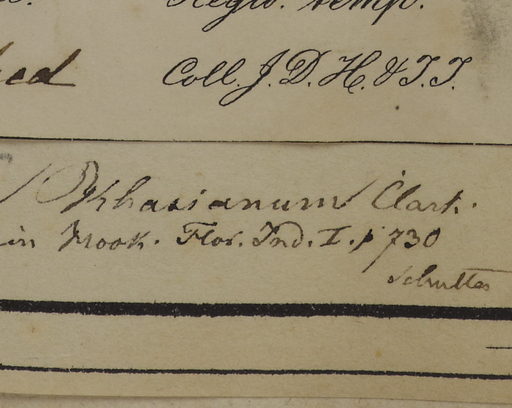 Regio. temp.
Coll. J. D. H. & T. T.
Khasianum Clark.
in Hook. Flor. Ind. I. p 730
Schultes